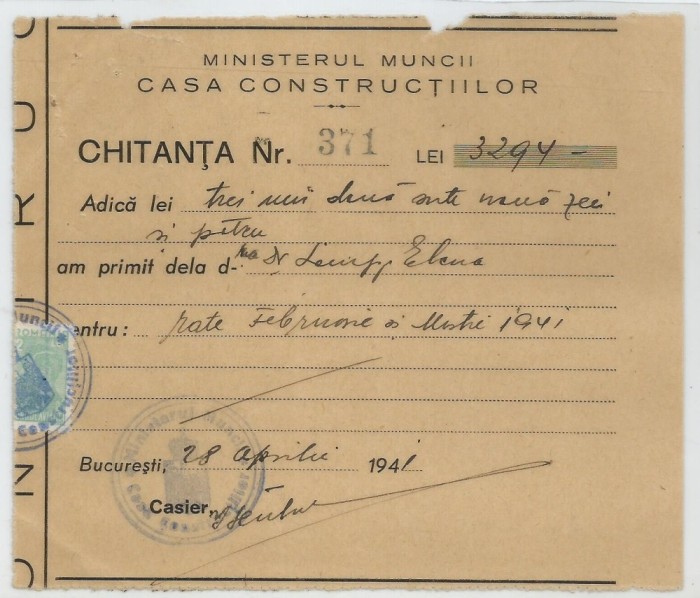 MINISTERUL MUNCII
CASA CONSTRUCȚIILOR
CHITANȚA Nr. 371 LEI 3294 –
Adică lei trei mii două sute nouă zeci
și patru
am primit dela d-na Dr Elena
entru: rate Februarie și Martie 1941
București, 28 Aprilie 1941
Casier,
Ministerul Muncii